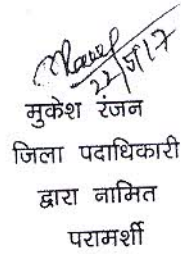 22/5/17
मुकेश रंजन
जिला पदाधिकारी
द्वारा नामित
परामर्शी